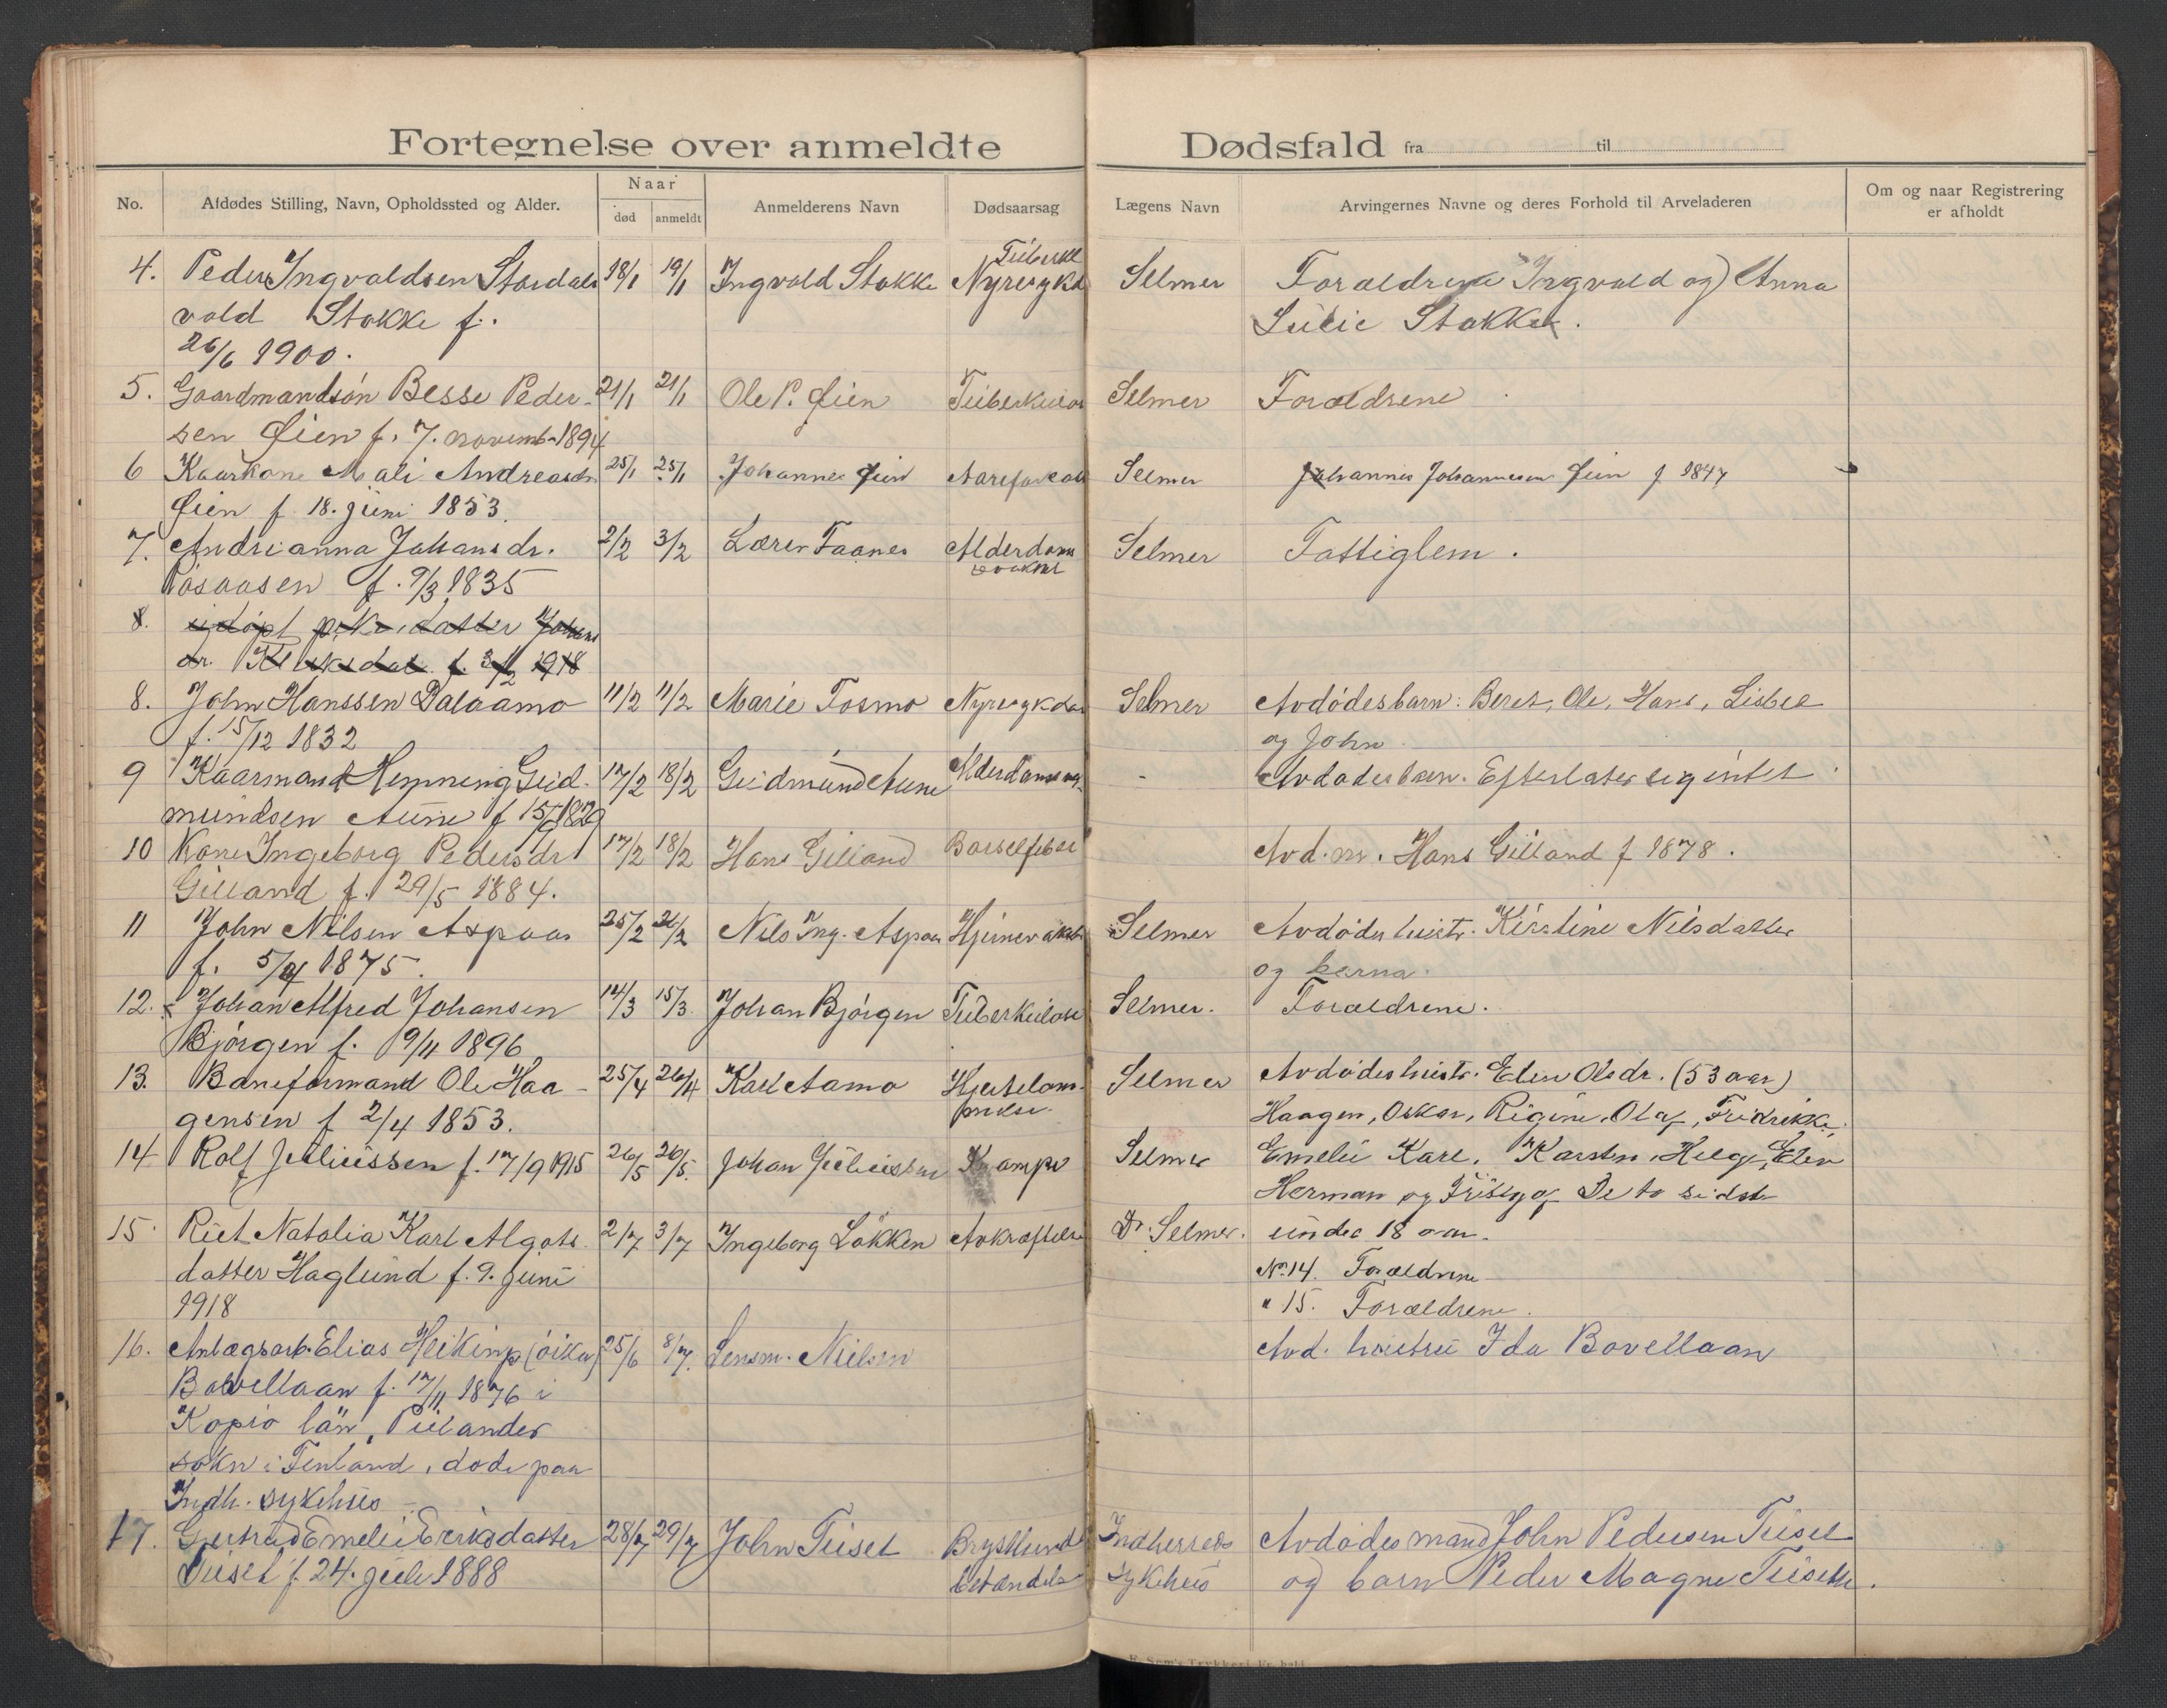 Fortegnelse over anmeldte Dødsfald fra til
No.
Afdødes Stilling, Navn, Opholdssted og Alder.
Naar
død
anmeldt
Anmelderens Navn
Dødsaarsag
Lægens Navn
Arvingernes Navne og deres Forhold til Arveladeren
Om og naar Registrering
er afholdt
Tuberkl
4. Peder Ingvaldsen Stordals 18/1 19/1 Ingvald Stokke Nyresykd Selmer Forældrene Ingvald og Anna
vold Stokke f. Julie Stokke.
26/6 1900.
5. Gaardmandsön Besse Peder- 21/1 21/1 Ole P. Øien Tuberkulos Selmer Forældrene
sen Øien f. 7. novemb. 1894
6 Kaarkone Mali Andreasdr 25/1 25/1 Johannes Øien Aareforkalk Selmer Johannes Johannesen Øien f 1847
Øien f. 18. juni 1853.
7. Andrianna Johansdr. 2/2 3/2 Lærer Faanes Alderdoms Selmer Fattiglem.
Aasaasen f. 9/3 1835 svakhet
8. udøpt pike, datter Johans
dr. f. 3/2 1918
8. John Hanssen Dalaamo 11/2 11/2 Marie Fosmo Nyresykdom Selmer Avdödes barn: Beret, Ole, Hans, Lisbet
f. 15/12 1832 og John
9 Kaarmand Henning Gud- 17/2 18/2 Gudmund Aune Alderdomssv. - Avdødes barn. Efterlater sig intet
mundsen Aune f 15/9 1829
10 Kone Ingeborg Pedersdr 17/2 18/2 Hans Gilland Barselfeber Avd. m. Hans Gilland f 1878.
Gilland f. 29/5 1884.
11 John Nilsen Aspaas 25/2 26/2 Nils Ing. Aspaas Hjernevakst Selmer Avdödes hustr. Kirstine Nilsdatter
f. 5/4 1875. og barna.
12. Johan Alfred Johansen 14/3 15/3 Johan Bjørgen Tuberkulose Selmer. Forældrene.
Bjørgen f. 9/11 1896
13. Baneformand Ole Haa- 25/4 26/4 Karl Aamo Hjertelam- Selmer Avdödes hustr. Elen Olsdr. (53 aar)
gensen f 2/4 1853. melse. Haagen, Oskar, Rigine, Olaf, Fredrikke,
14 Rolf Juliussen f. 17/9 1915 26/5 26/5. Johan Juliussen Krampe Selmer Emelie Karl, Karsten, Helge, Elen
Herman og Fritjof De to sidste
15. Rut Natalia Karl Algots 2/7 3/7 Ingeborg Løkken Avkræftelse Dr. Selmer. under 18 aar.
datter Haglund f. 9. juni No. 14. Forældrene
1918 " 15. Forældrene.
16. Anlægsarb. Elias Heikinp(oika) 25/6 8/7. Lensm. Nielsen Avd. hustru Ida Bovellaan
Bovellaan f. 17/11 1876 i
Kopio län, Pielander
sokn i Finland, døde paa
Indh. sykehus
17. Gertrud Emelie Eriksdatter 28/7 29/7 John Tuset Brysthinde Indherreds Avdødes mand John Pedersen Tuset
Tuset f. 24. juli 1888 betændelse Sykehus og barn Peder Magne Tuseth.